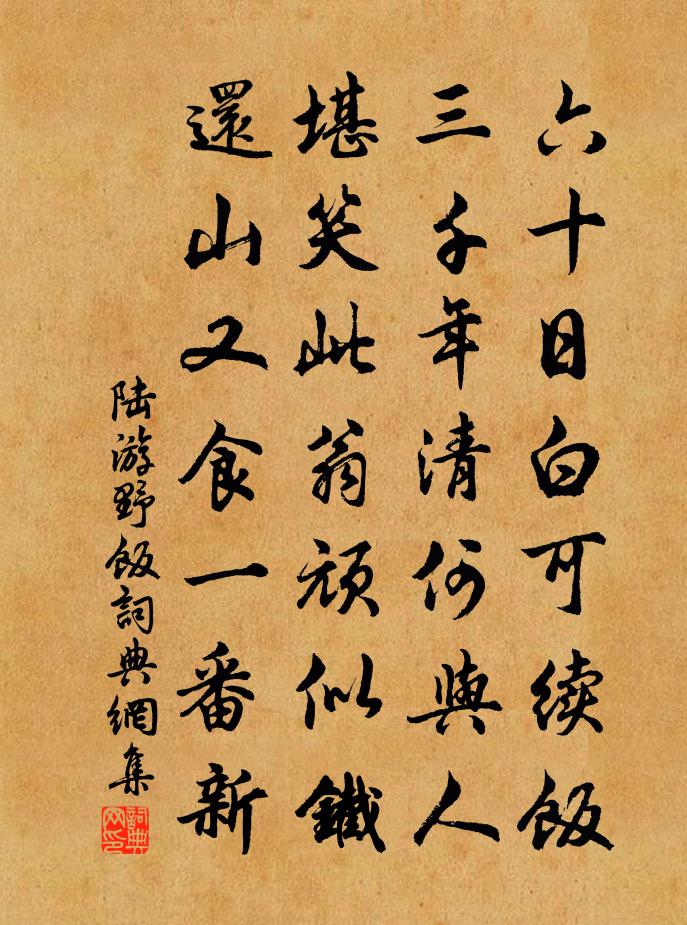 六十日白可續飯
三千年清何與人
堪笑此翁頑似鐵
還山又食一番新
陸游野飯詞典網集
詞典網印